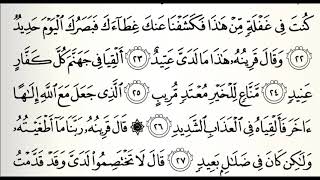 كُنتَ فِى غَفْلَةٍ مِّنْ هَٰذَا فَكَشَفْنَا عَنكَ غِطَآءَكَ فَبَصَرُكَ ٱلْيَوْمَ حَدِيدٌ
٢٢ وَقَالَ قَرِينُهُۥ هَٰذَا مَا لَدَىَّ عَتِيدٌ ٢٣ أَلْقِيَا فِى جَهَنَّمَ كُلَّ كَفَّارٍ
عَنِيدٍ ٢٤ مَّنَّاعٍ لِّلْخَيْرِ مُعْتَدٍ مُّرِيبٍ ٢٥ ٱلَّذِى جَعَلَ مَعَ ٱللَّهِ إِلَٰهًا
ءَاخَرَ فَأَلْقِيَاهُ فِى ٱلْعَذَابِ ٱلشَّدِيدِ ٢٦ ۞ قَالَ قَرِينُهُۥ رَبَّنَا مَآ أَطْغَيْتُهُۥ
وَلَٰكِن كَانَ فِى ضَلَٰلٍۭ بَعِيدٍ ٢٧ قَالَ لَا تَخْتَصِمُوا۟ لَدَىَّ وَقَدْ قَدَّمْتُ